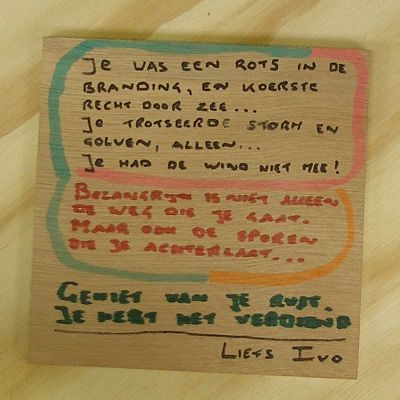 Je was een rots in de
branding, en koerste
recht door zee...
Je trotseerde storm en
golven, alleen...
Je had de wind niet mee!
Belangrijk is niet alleen
de weg die je gaat.
Maar ook de sporen
die je achterlaat...
Geniet van je rust.
Je hebt het verdiend
Liefs Ivo